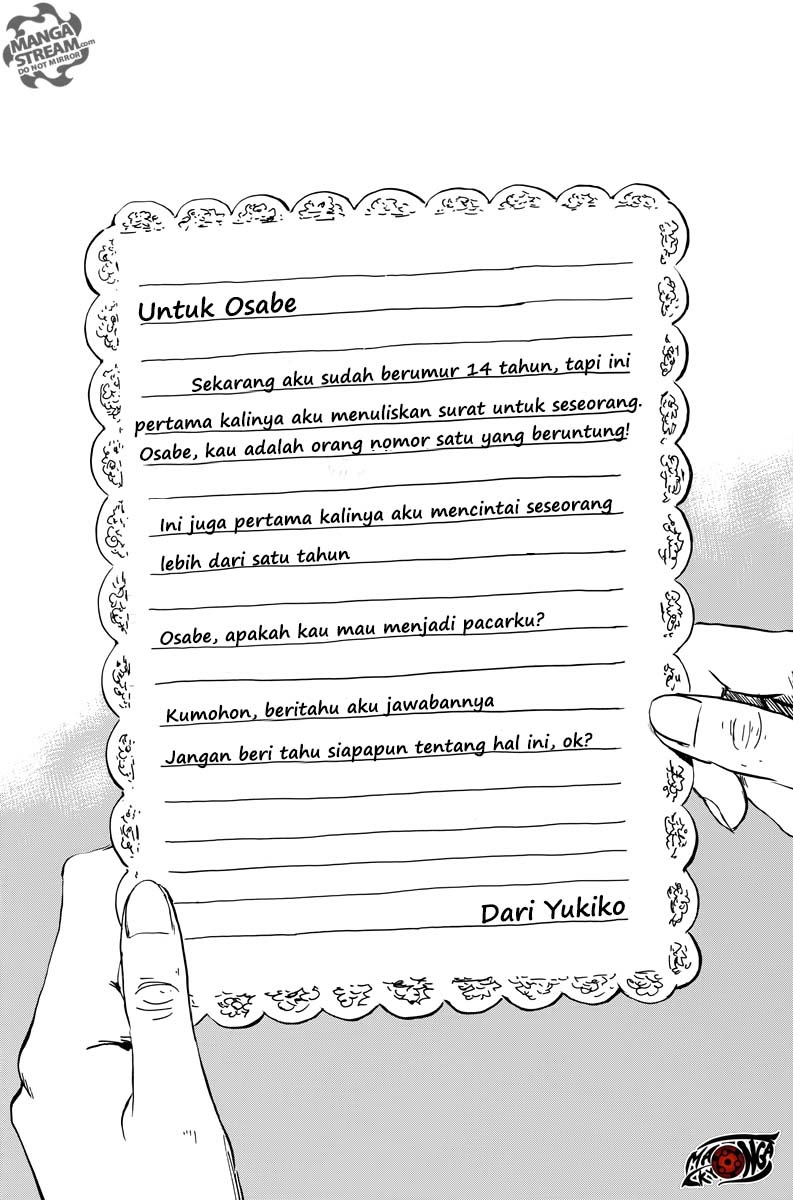 MANGA
STREAM.com
DO NOT MIRROR
Untuk Osabe
Sekarang aku sudah berumur 14 tahun, tapi ini
pertama kalinya aku menuliskan surat untuk seseorang.
Osabe, kau adalah orang nomor satu yang beruntung!
Ini juga pertama kalinya aku mencintai seseorang
lebih dari satu tahun
Osabe, apakah kau mau menjadi pacarku?
Kumohon, beritahu aku jawabannya
Jangan beri tahu siapapun tentang hal ini, ok?
Dari Yukiko